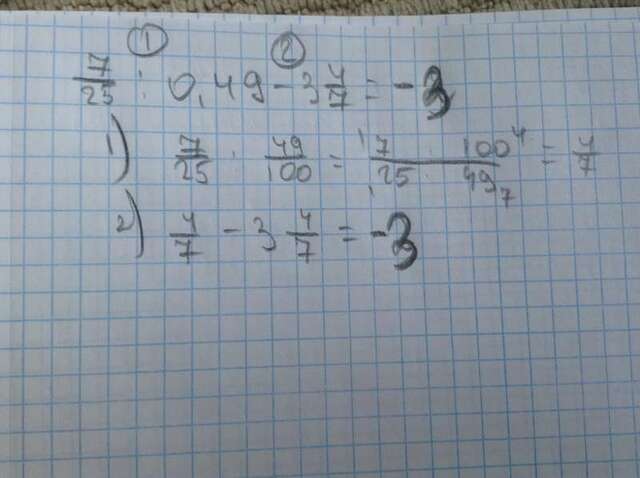 ① ②
7/25 : 0,49 - 3 4/7 = -3
1) 7/25 : 49/100 = 7 · 100/25 · 49 = 4/7
2) 4/7 - 3 4/7 = -3